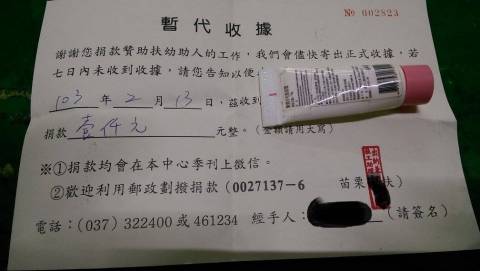 暫代收據
№ 002823
謝謝您捐款贊助扶幼助人的工作,我們會儘快寄出正式收據,若
七日內未收到收據,請您告知以便
103 年 2 月 13 日,茲收到
捐款 壹仟元 元整。(金額請用大寫)
※①捐款均會在本中心季刊上徵信。
②歡迎利用郵政劃撥捐款(0027137-6 苗栗 扶)
電話:(037)322400 或 461234 經手人: (請簽名)